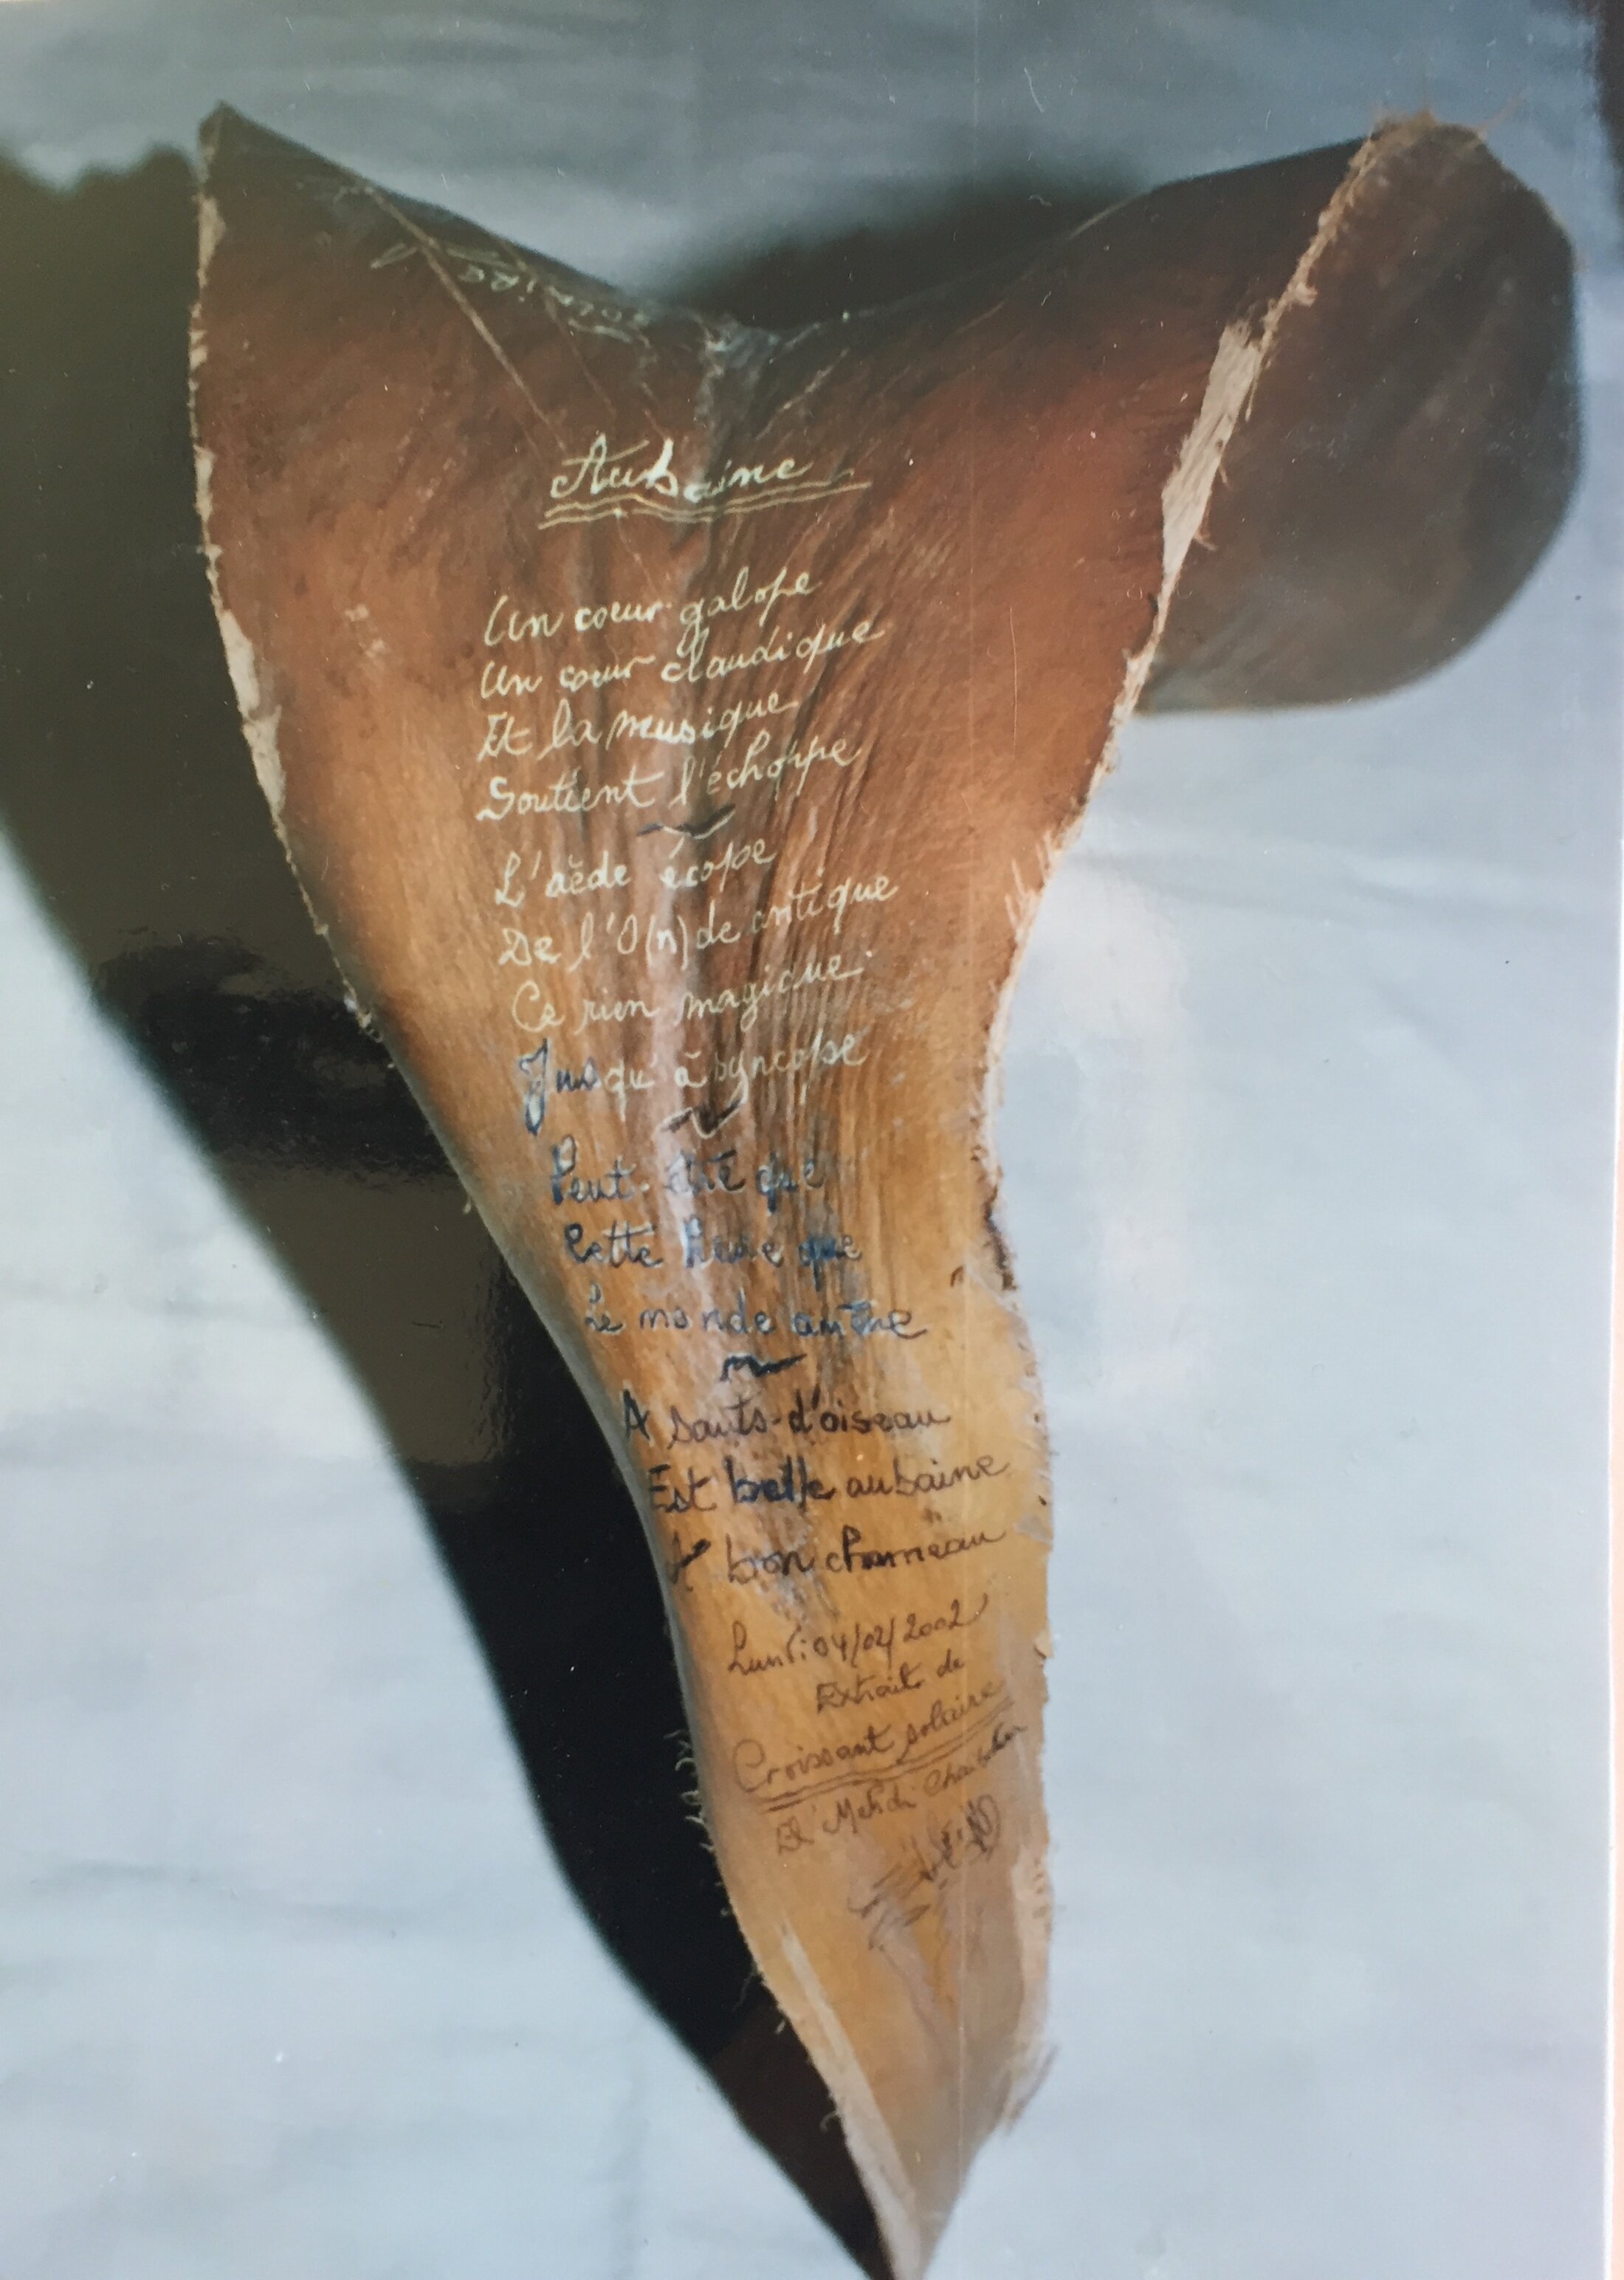 Solaire
Aubaine
Un cœur galope
Un cœur claudique
Et la musique
Soutient l'échoppe
L'aède écope
De l'O(n)de antique
Ce rien magique
Jusqu'à syncope
Peut-être que
Cette que
Le monde amène
A sauts-d'oiseau
Est belle aubaine
A bon chameau
Lundi 04/02/2002
Extrait de
Croissant solaire
El Mehdi